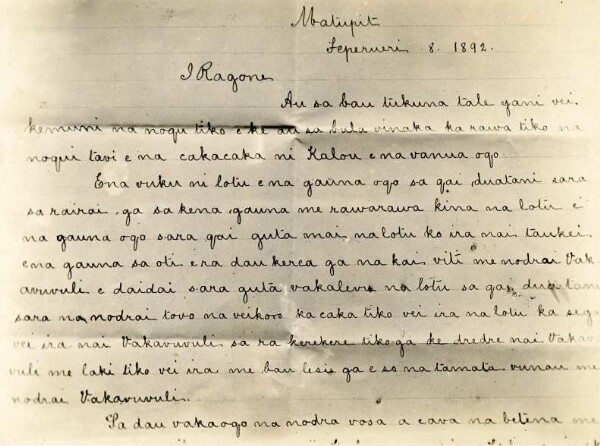 Matupit
Feperueri 8. 1892.
I Ragone
Au sa bau tukuna tale yani vei
kemuni na noqu tiko e ke au sa bula vinaka ka rawa tiko na
noqui tavi e na cakacaka ni Kalou e na vanua oqo
Ena vuku ni lotu e na gauna oqo sa qai duatani sara
sa rairai, ga sa kena gauna me rawarawa kina na lotu e
na gauna oqo sara qai guta mai na lotu ko ira nai taukei
ena gauna sa oti era dau kerea ga na kai viti me nodrai Vak
avuvuli e daidai sara guta vakalevu na lotu sa ga dua tani
sara na nodrai tovo na veikoro ka caka tiko vei ira na lotu ka sega
vei ira nai Vakavuvuli sa ra kerekere tiko ga ke dredre nai Vakav
vuli me laki tiko vei ira me bau lesia ga e so na tamata vunau me
nodrai Vakavuvuli.
Sa dau vakaogo na nodra vosa a cava na betena me